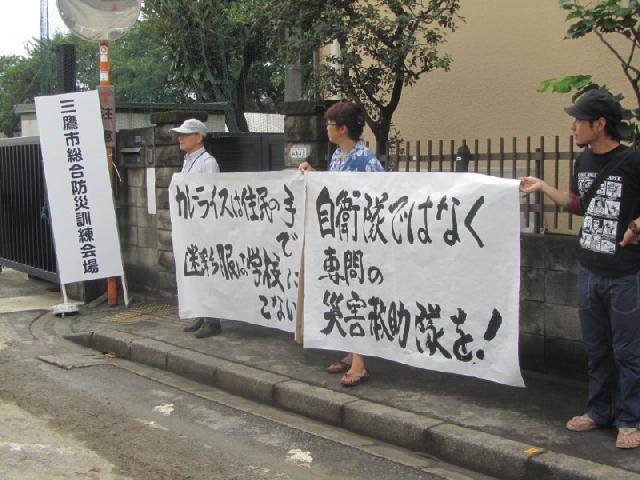 三鷹市総合防災訓練会場
カレーライスは住民の手で
迷彩服は学校に
こないで
自衛隊ではなく
専門の
災害救助隊を!